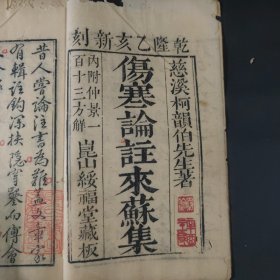 乾隆乙亥新刻
慈溪柯韻伯先生著
傷寒論註來蘇集
內附仲景一
百十三方解
崑山綏福堂藏板
昔人嘗論注書為難
有輯註鈎深抉隱穿鑿而傅會